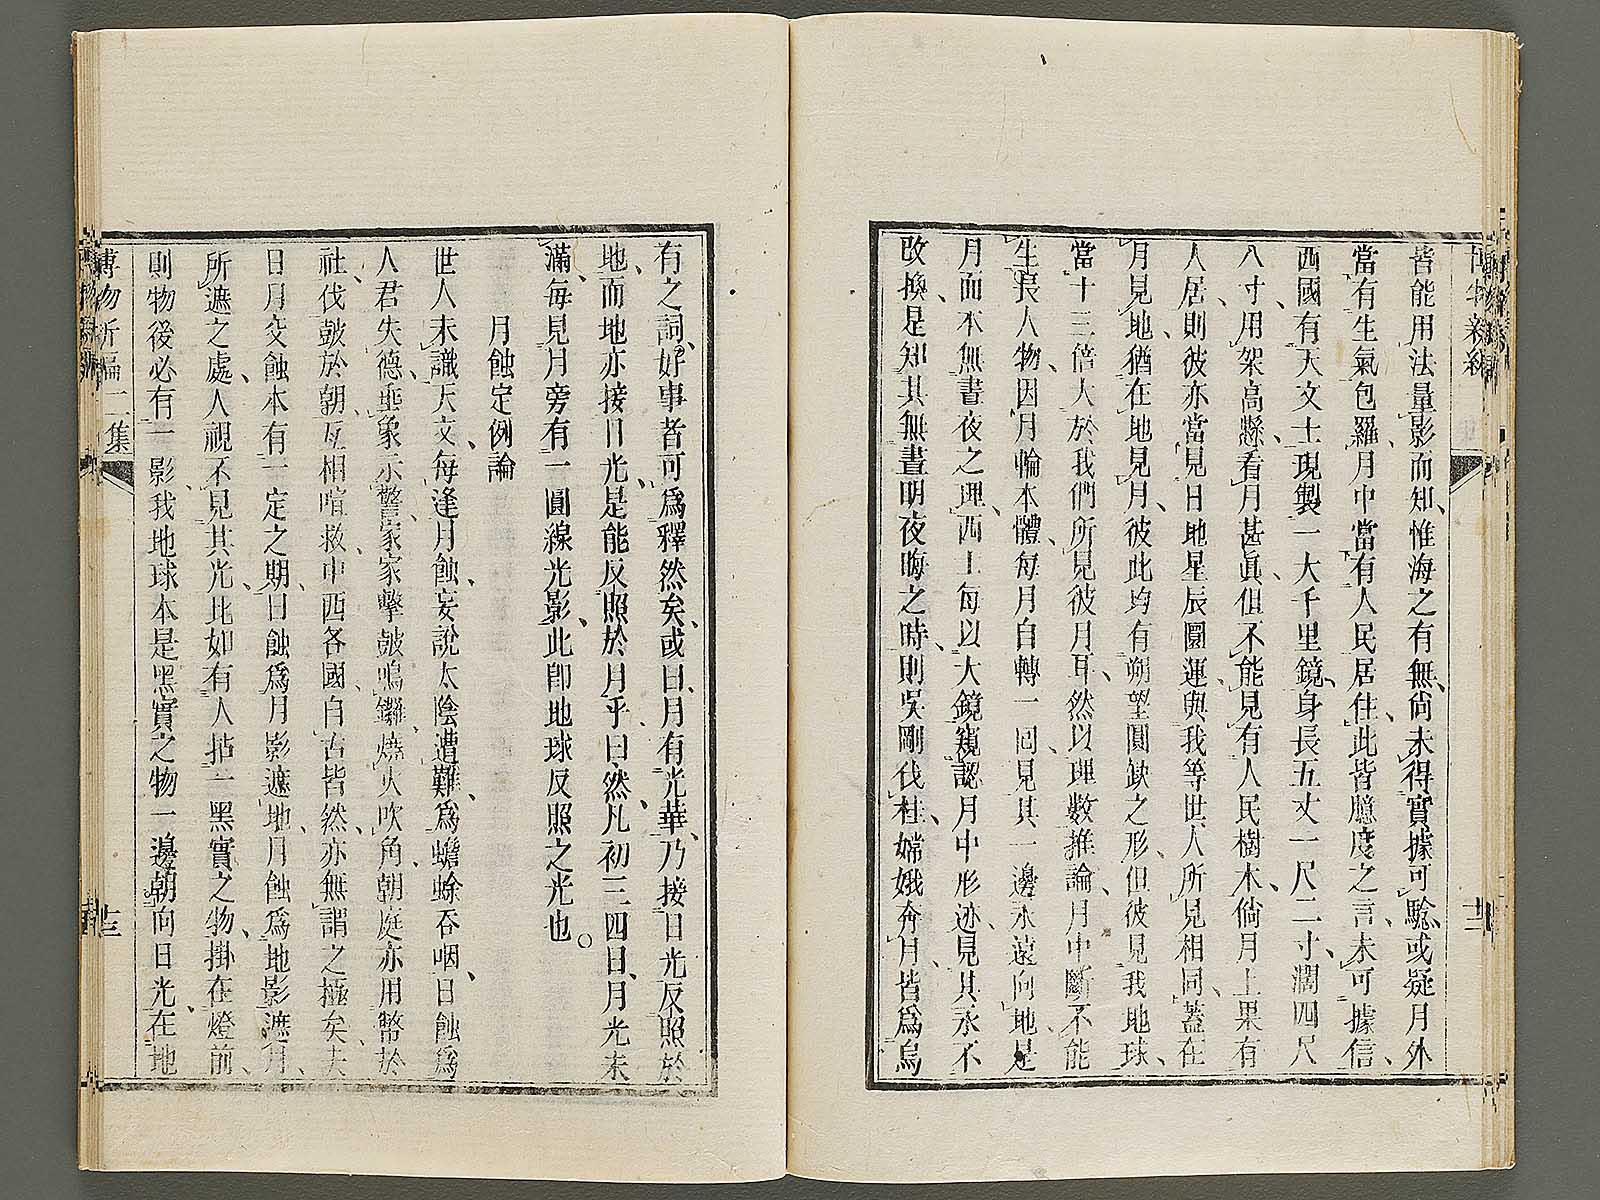 皆能用法量影而知、惟海之有無、尚未得實據可騐、或疑月外
當有生氣包羅、月中當有人民居住、此皆臆度之言、未可據信、
西國有天文士現製一大千里鏡、身長五丈一尺二寸、濶四尺
八寸、用架高懸、看月甚眞、但不能見有人民樹木、倘月上果有
人居、則彼亦當見日地星辰圜運、與我等世人所見相同、蓋在
月見地、猶在地見月、彼此均有朔望圓缺之形、但彼見我地球、
當十三倍大於我們所見彼月耳、然以理數推論、月中斷不能
生長人物、因月輪本體、每月自轉一囘、見其一邊永遠向地、是
月面本無晝夜之理、西士每以大鏡窺認月中形迹、見其永不
改換、是知其無晝明夜晦之時、則吳剛伐桂、嫦娥奔月、皆爲烏
有之詞、好事者可爲釋然矣、或曰、月有光華、乃接日光反照於
地、而地亦接日光、是能反照於月乎、曰然、凡初三四日、月光未
滿、每見月旁有一圓線光影、此卽地球反照之光也。
月蝕定例論
世人未識天文、每逢月蝕、妄說太陰遭難、爲蟾蜍吞咽、日蝕爲
人君失德、垂象示警、家家擊鼓鳴鑼、燒火吹角、朝庭亦用幣於
社、伐鼓於朝、互相喧救、中西各國、自古皆然、亦無謂之極矣、夫
日月交蝕、本有一定之期、日蝕爲月影遮地、月蝕爲地影遮月、
所遮之處、人視不見其光、比如有人拈一黑實之物、掛在燈前、
則物後必有一影、我地球本是黑實之物、一邊朝向日光、在地
博物新編二集